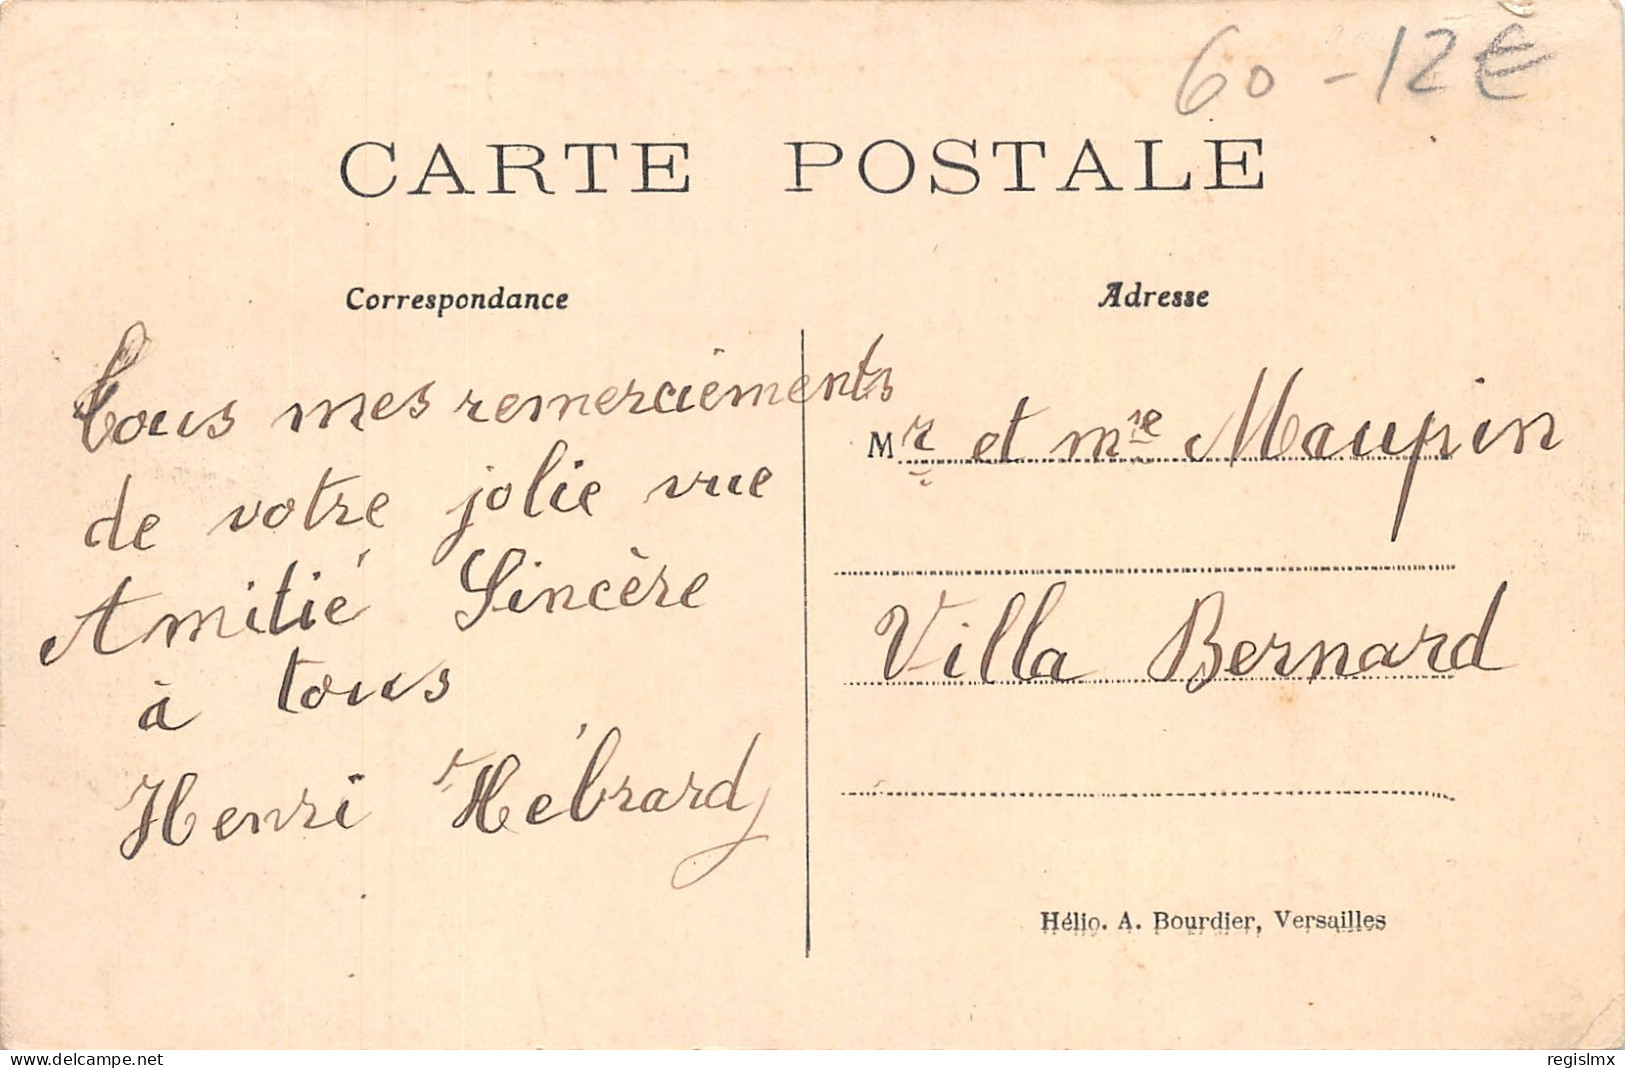 60 - 12€
CARTE POSTALE
Correspondance
Tous mes remerciements
de votre jolie vue
Amitié Sincère
à tous
Henri Hébrard
Adresse
Mr et mme Maupin
Villa Bernard
Hélio. A. Bourdier, Versailles
www.delcampe.net
regislmx